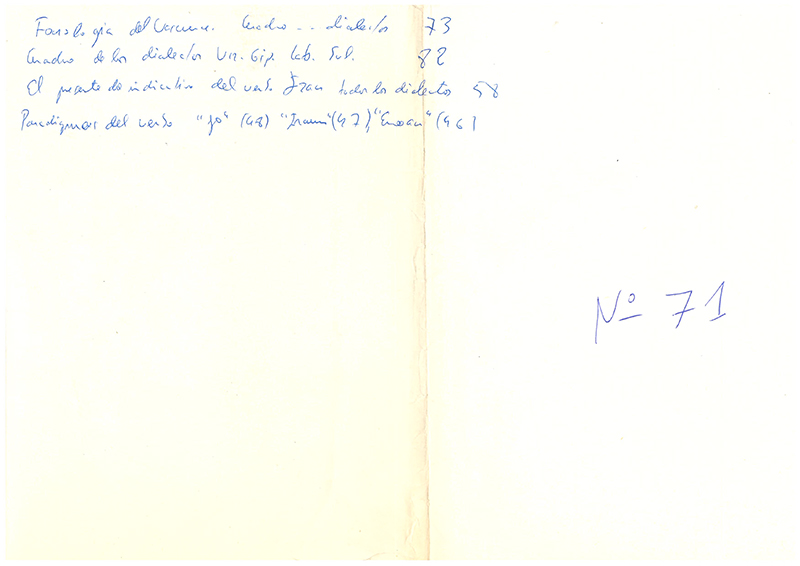 Fonología del Vascuence. Cuadro -- dialectos 73
Cuadro de los dialectos Viz. Gip. Lab. Sul. 82
El presente de indicativo del verbo Izan todos los dialectos 58
Paradigmas del verbo "jo" (48) "Iraun" (47), "Emoan" (46)
Nº 71